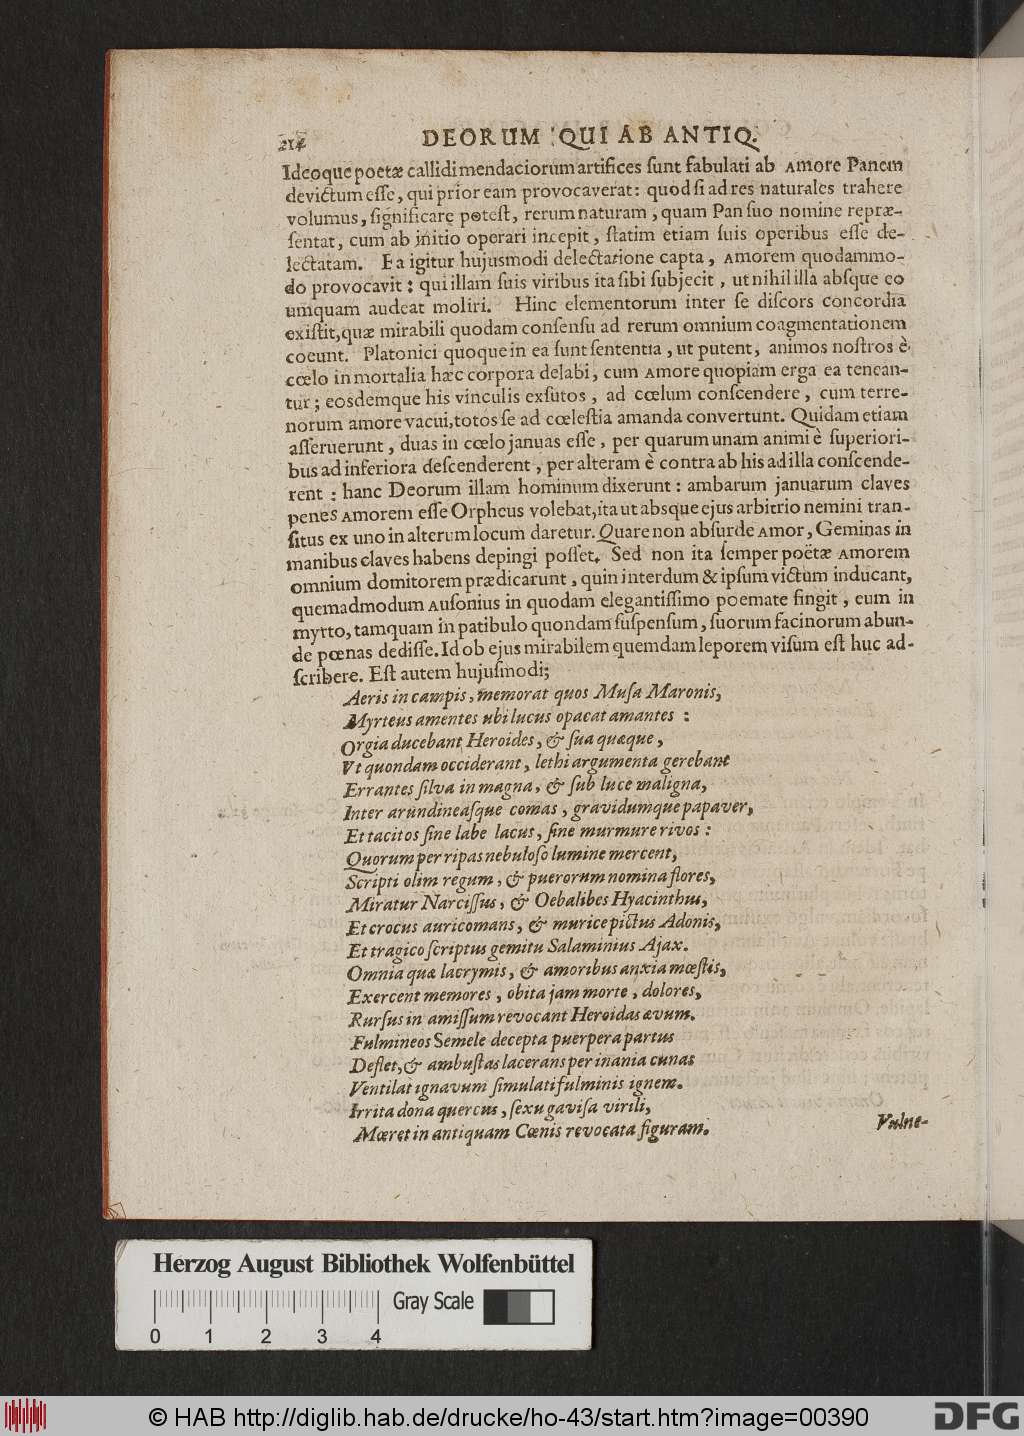 214 DEORUM QUI AB ANTIQ.
Ideoque poetæ callidi mendaciorum artifices ſunt fabulati ab AMore Panem
devictum eſſe, qui prior eam provocaverat: quod ſi ad res naturales trahere
volumus, ſignificare poteſt, rerum naturam, quam Pan ſuo nomine repræ-
ſentat, cum ab initio operari incepit, ſtatim etiam ſuis operibus eſſe de-
lectatam. Ea igitur hujusmodi delectatione capta, AMorem quodammo-
do provocavit: qui illam ſuis viribus ita ſibi ſubjecit, ut nihil illa abſque eo
umquam audeat moliri. Hinc elementorum inter ſe diſcors concordia
exiſtit, quæ mirabili quodam conſenſu ad rerum omnium coagmentationem
coeunt. Platonici quoque in ea ſunt ſententia, ut putent, animos noſtros è
cœlo in mortalia hæc corpora delabi, cum AMore quopiam erga ea tenean-
tur; eosdemque his vinculis exſutos, ad cœlum conſcendere, cum terre-
norum amore vacui, totos ſe ad cœleſtia amanda convertunt. Quidam etiam
aſſeruerunt, duas in cœlo januas eſſe, per quarum unam animi è ſuperiori-
bus ad inferiora deſcenderent, per alteram è contra ab his ad illa conſcende-
rent: hanc Deorum illam hominum dixerunt: ambarum januarum claves
penes AMorem eſſe Orpheus volebat, ita ut absque ejus arbitrio nemini tran-
ſitus ex uno in alterum locum daretur. Quare non abſurde AMor, Geminas in
manibus claves habens depingi poſſet. Sed non ita ſemper poëtæ AMorem
omnium domitorem prædicarunt, quin interdum & ipſum victum inducant,
quemadmodum AUſonius in quodam elegantiſſimo poemate fingit, eum in
myrto, tamquam in patibulo quondam ſuſpenſum, ſuorum facinorum abun-
de pœnas dediſſe. Id ob ejus mirabilem quemdam leporem viſum eſt huc ad-
ſcribere. Eſt autem hujuſmodi;
Aeris in campis, memorat quos Muſa Maronis,
Myrteus amentes ubi lucus opacat amantes:
Orgia ducebant Heroides, & ſua quæque,
Vt quondam occiderant, lethi argumenta gerebant
Errantes ſilva in magna, & ſub luce maligna,
Inter arundineaſque comas, gravidumque papaver,
Et tacitos ſine labe lacus, ſine murmure rivos:
Quorum per ripas nebuloſo lumine mercent,
Scripti olim regum, & puerorum nomina flores,
Miratur Narciſſus, & Oebalibes Hyacinthus,
Et crocus auricomans, & murice pictus Adonis,
Et tragico ſcriptus gemitu Salaminius Ajax.
Omnia quæ lacrymis, & amoribus anxia mœſtis,
Exercent memores, obita jam morte, dolores,
Rurſus in amiſſum revocant Heroidas ævum.
Fulmineos Semele decepta puerpera partus
Deflet, & ambuſtas lacerans per inania cunas
Ventilat ignavum ſimulati fulminis ignem.
Irrita dona quercus, ſexu gaviſa virili,
Mœret in antiquam Cœnis revocata figuram.
Vulne-
Herzog August Bibliothek Wolfenbüttel
Gray Scale
0 1 2 3 4
© HAB http://diglib.hab.de/drucke/ho-43/start.htm?image=00390
DFG